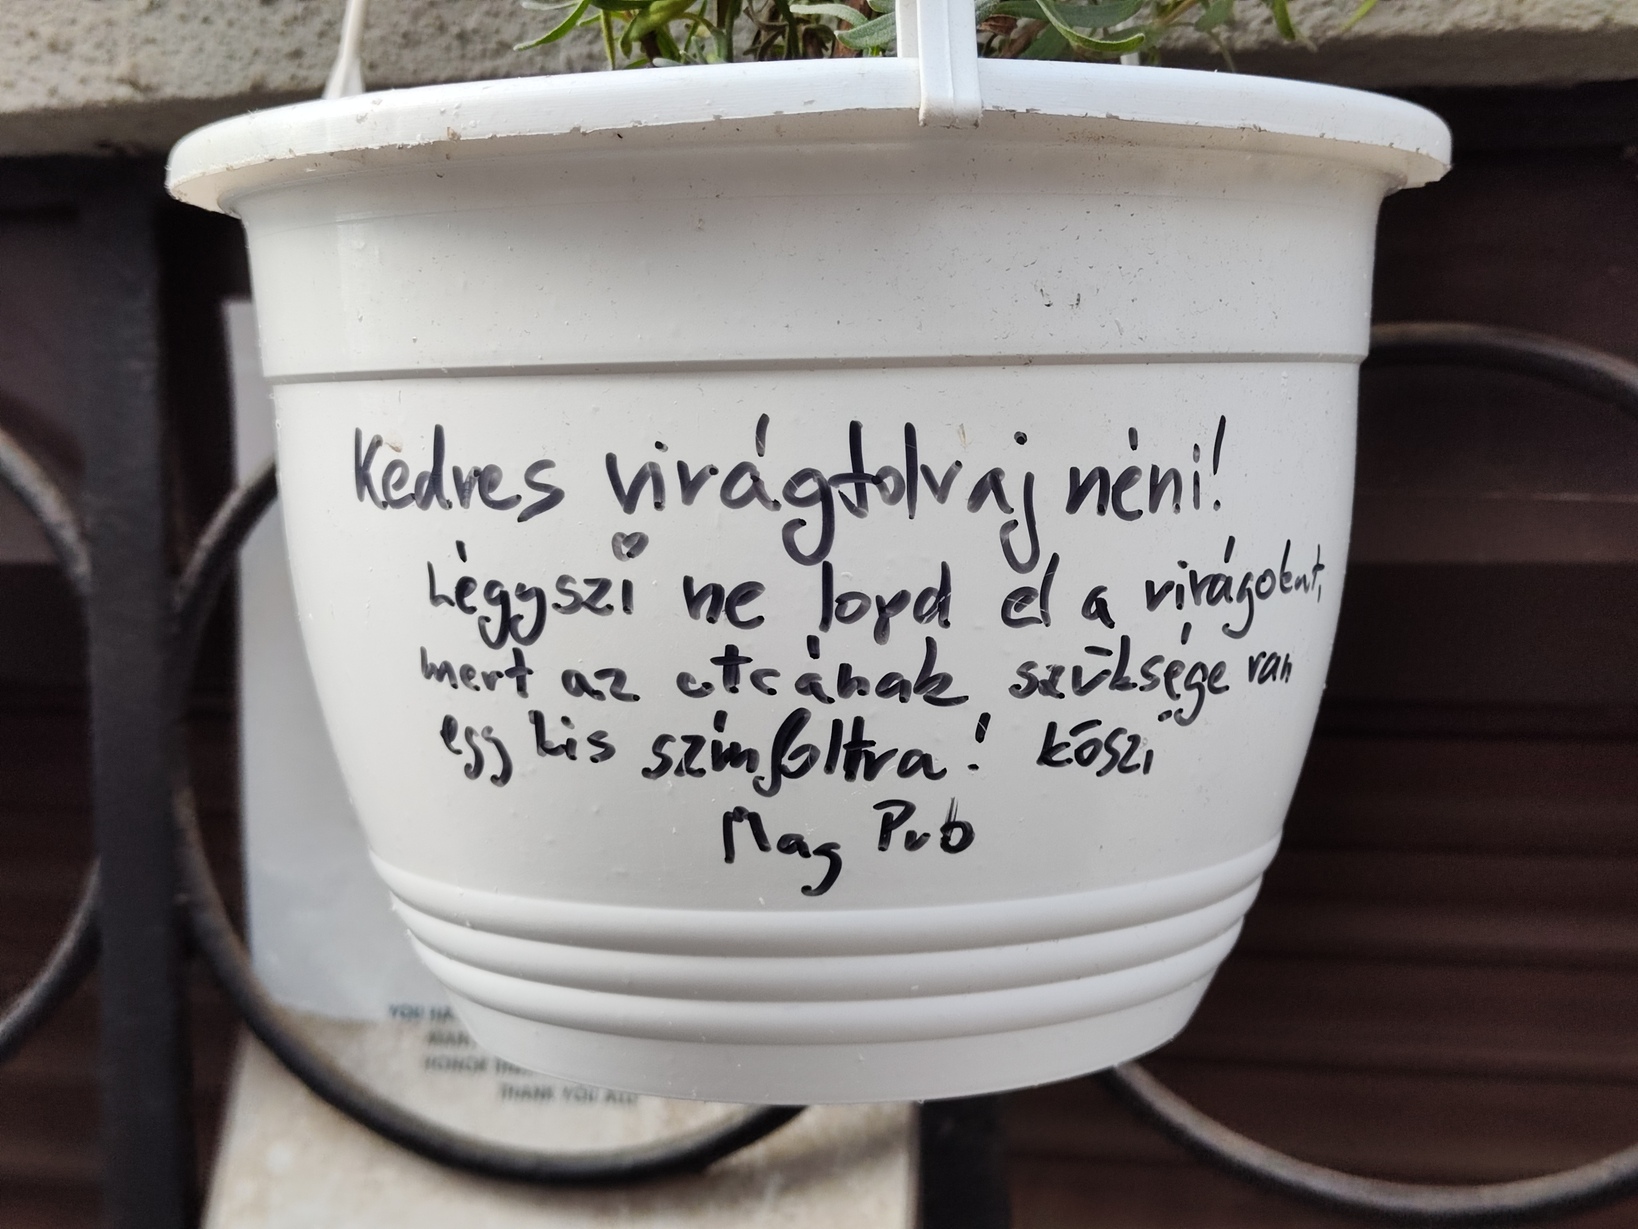 Kedves virágtolvaj néni!
Légyszi ne lopd el a virágokat,
mert az utcának szüksége van
egy kis színfoltra! köszi
Mag Pub
YOU HA
HONOR
THANK YOU